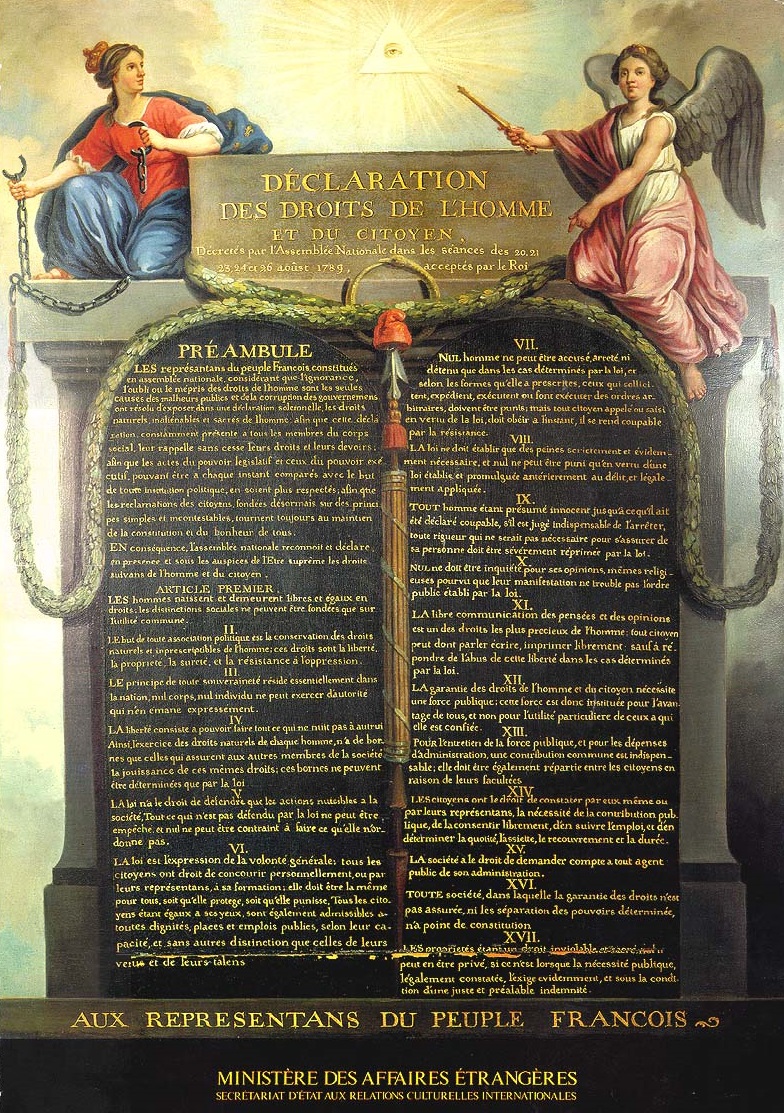 DÉCLARATION
DES DROITS DE L'HOMME
ET DU CITOYEN,
Décretés par l'Assemblée Nationale dans les séances des 20, 21
23, 24 et 26 aoûst 1789, acceptés par le Roi
PRÉAMBULE
LES représantans du peuple Francois, constitués
en assemblée nationale, considérant que l'ignorance,
l'oubli ou le mépris des droits de l'homme sont les seules
causes des malheurs publics et de la corruption des gouvernemens
ont résolu d'exposer dans une déclaration solemnelle, les droits
naturels, inaliénables et sacrés de l'homme; afin que cette décla
ration, constamment présente a tous les membres du corps
social, leur rappelle sans cesse leurs droits et leurs devoirs;
afin que les actes du pouvoir législatif et ceux du pouvoir exé
cutif, pouvant être a chaque instant comparés avec le but
de toute institution politique, en soient plus respectés; afin que
les reclamations des citoyens, fondées désormais sur des princi
pes simples et incontestables, tournent toujours au maintien
de la constitution et du bonheur de tous.
EN conséquence, l'assemblée nationale reconnoit et déclare,
en presence et sous les auspices de l'Etre suprême les droits
suivans de l'homme et du citoyen.
ARTICLE PREMIER.
LES hommes naissent et demeurent libres et égaux en
droits; les distinctions sociales ne peuvent être fondées que sur
l'utilité commune.
II.
LE but de toute association politique est la conservation des droits
naturels et inprescriptibles de l'homme; ces droits sont la liberté,
la propriété, la sureté, et la résistance à l'oppression.
III.
LE principe de toute souveraineté réside essentiellement dans
la nation, nul corps, nul individu ne peut exercer d'autorité
qui n'en émane expressément.
IV.
LA liberté consiste a pouvoir faire tout ce qui ne nuit pas à autrui
Ainsi, l'exercice des droits naturels de chaque homme, n'a de bor-
nes que celles qui assurent aux autres membres de la société
la jouissance de ces mêmes droits; ces bornes ne peuvent
être déterminées que par la loi
V.
LA loi n'a le droit de défendre que les actions nuisibles a la
société. Tout ce qui n'est pas défendu par la loi ne peut être
empêché, et nul ne peut être contraint à faire ce qu'elle n'or-
donne pas.
VI.
LA loi est l'expression de la volonté générale; tous les
citoyens ont droit de concourir personnellement, ou par
leurs représentans, à sa formation; elle doit être la même
pour tous, soit qu'elle protege, soit qu'elle punisse, Tous les cito-
yens étant égaux a ses yeux, sont également admissibles a
toutes dignités, places et emplois publics, selon leur ca-
pacité, et sans autres distinction que celles de leurs
vertus et de leurs talens
VII.
NUL homme ne peut être accusé, arreté, ni
détenu que dans les cas déterminés par la loi, et
selon les formes qu'elle a prescrites, ceux qui sollici-
tent, expédient, exécutent ou font exécuter des ordres ar-
bitraires, doivent être punis; mais tout citoyen appelé ou saisi
en vertu de la loi, doit obéir a l'instant, il se rend coupable
par la résistance.
VIII.
LA loi ne doit établir que des peines strictement et évidem-
ment nécessaire, et nul ne peut être puni qu'en vertu d'une
loi établie et promulguée antérierement au délit, et légale-
ment appliquée.
IX.
TOUT homme étant présumé innocent jusqu'a ce qu'il ait
été déclaré coupable, s'il est jugé indispensable de l'arrêter,
toute rigueur qui ne serait pas nécessaire pour s'assurer de
sa personne doit être sévèrement réprimée par la loi.
X.
NUL ne doit être inquiété pour ses opinions, mêmes religi-
euses pourvu que leur manifestation ne trouble pas l'ordre
public établi par la loi.
XI.
LA libre communication des pensées et des opinions
est un des droits les plus precieux de l'homme; tout citoyen
peut dont parler écrire, imprimer librement; sauf à ré-
pondre de l'abus de cette liberté dans les cas déterminés
par la loi.
XII.
LA garantie des droits de l'homme et du citoyen nécessite
une force publique; cette force est donc instituée pour l'avan-
tage de tous, et non pour l'utilité particuliere de ceux a qui
elle est confiée.
XIII.
POUR l'entretien de la force publique, et pour les dépenses
d'administration, une contribution commune est indispen-
sable; elle doit être également répartie entre les citoyens en
raison de leurs facultées
XIV.
LES citoyens ont le droit de constater par eux même ou
par leurs réprésentans, la nécessité de la contribution pub-
lique, de la consentir librement, d'en suivre l'emploi, et d'en
déterminer la quotité, l'assiette, le recouvrement et la durée.
XV.
LA société a le droit de demander compte a tout agent
public de son administration.
XVI.
TOUTE société, dans laquelle la garantie des droits n'est
pas assurée, ni les séparation des pouvoirs déterminée,
n'a point de constitution
XVII.
LES propriétés étant un droit inviolable et sacré, nul n
peut en être privé, si ce n'est lorsque la nécessité publique,
légalement constatée, l'exige evidemment, et sous la condi-
tion d'une juste et préalable indemnité.
AUX REPRESENTANS DU PEUPLE FRANCOIS
MINISTÈRE DES AFFAIRES ÉTRANGÈRES
SECRÉTARIAT D'ÉTAT AUX RELATIONS CULTURELLES INTERNATIONALES